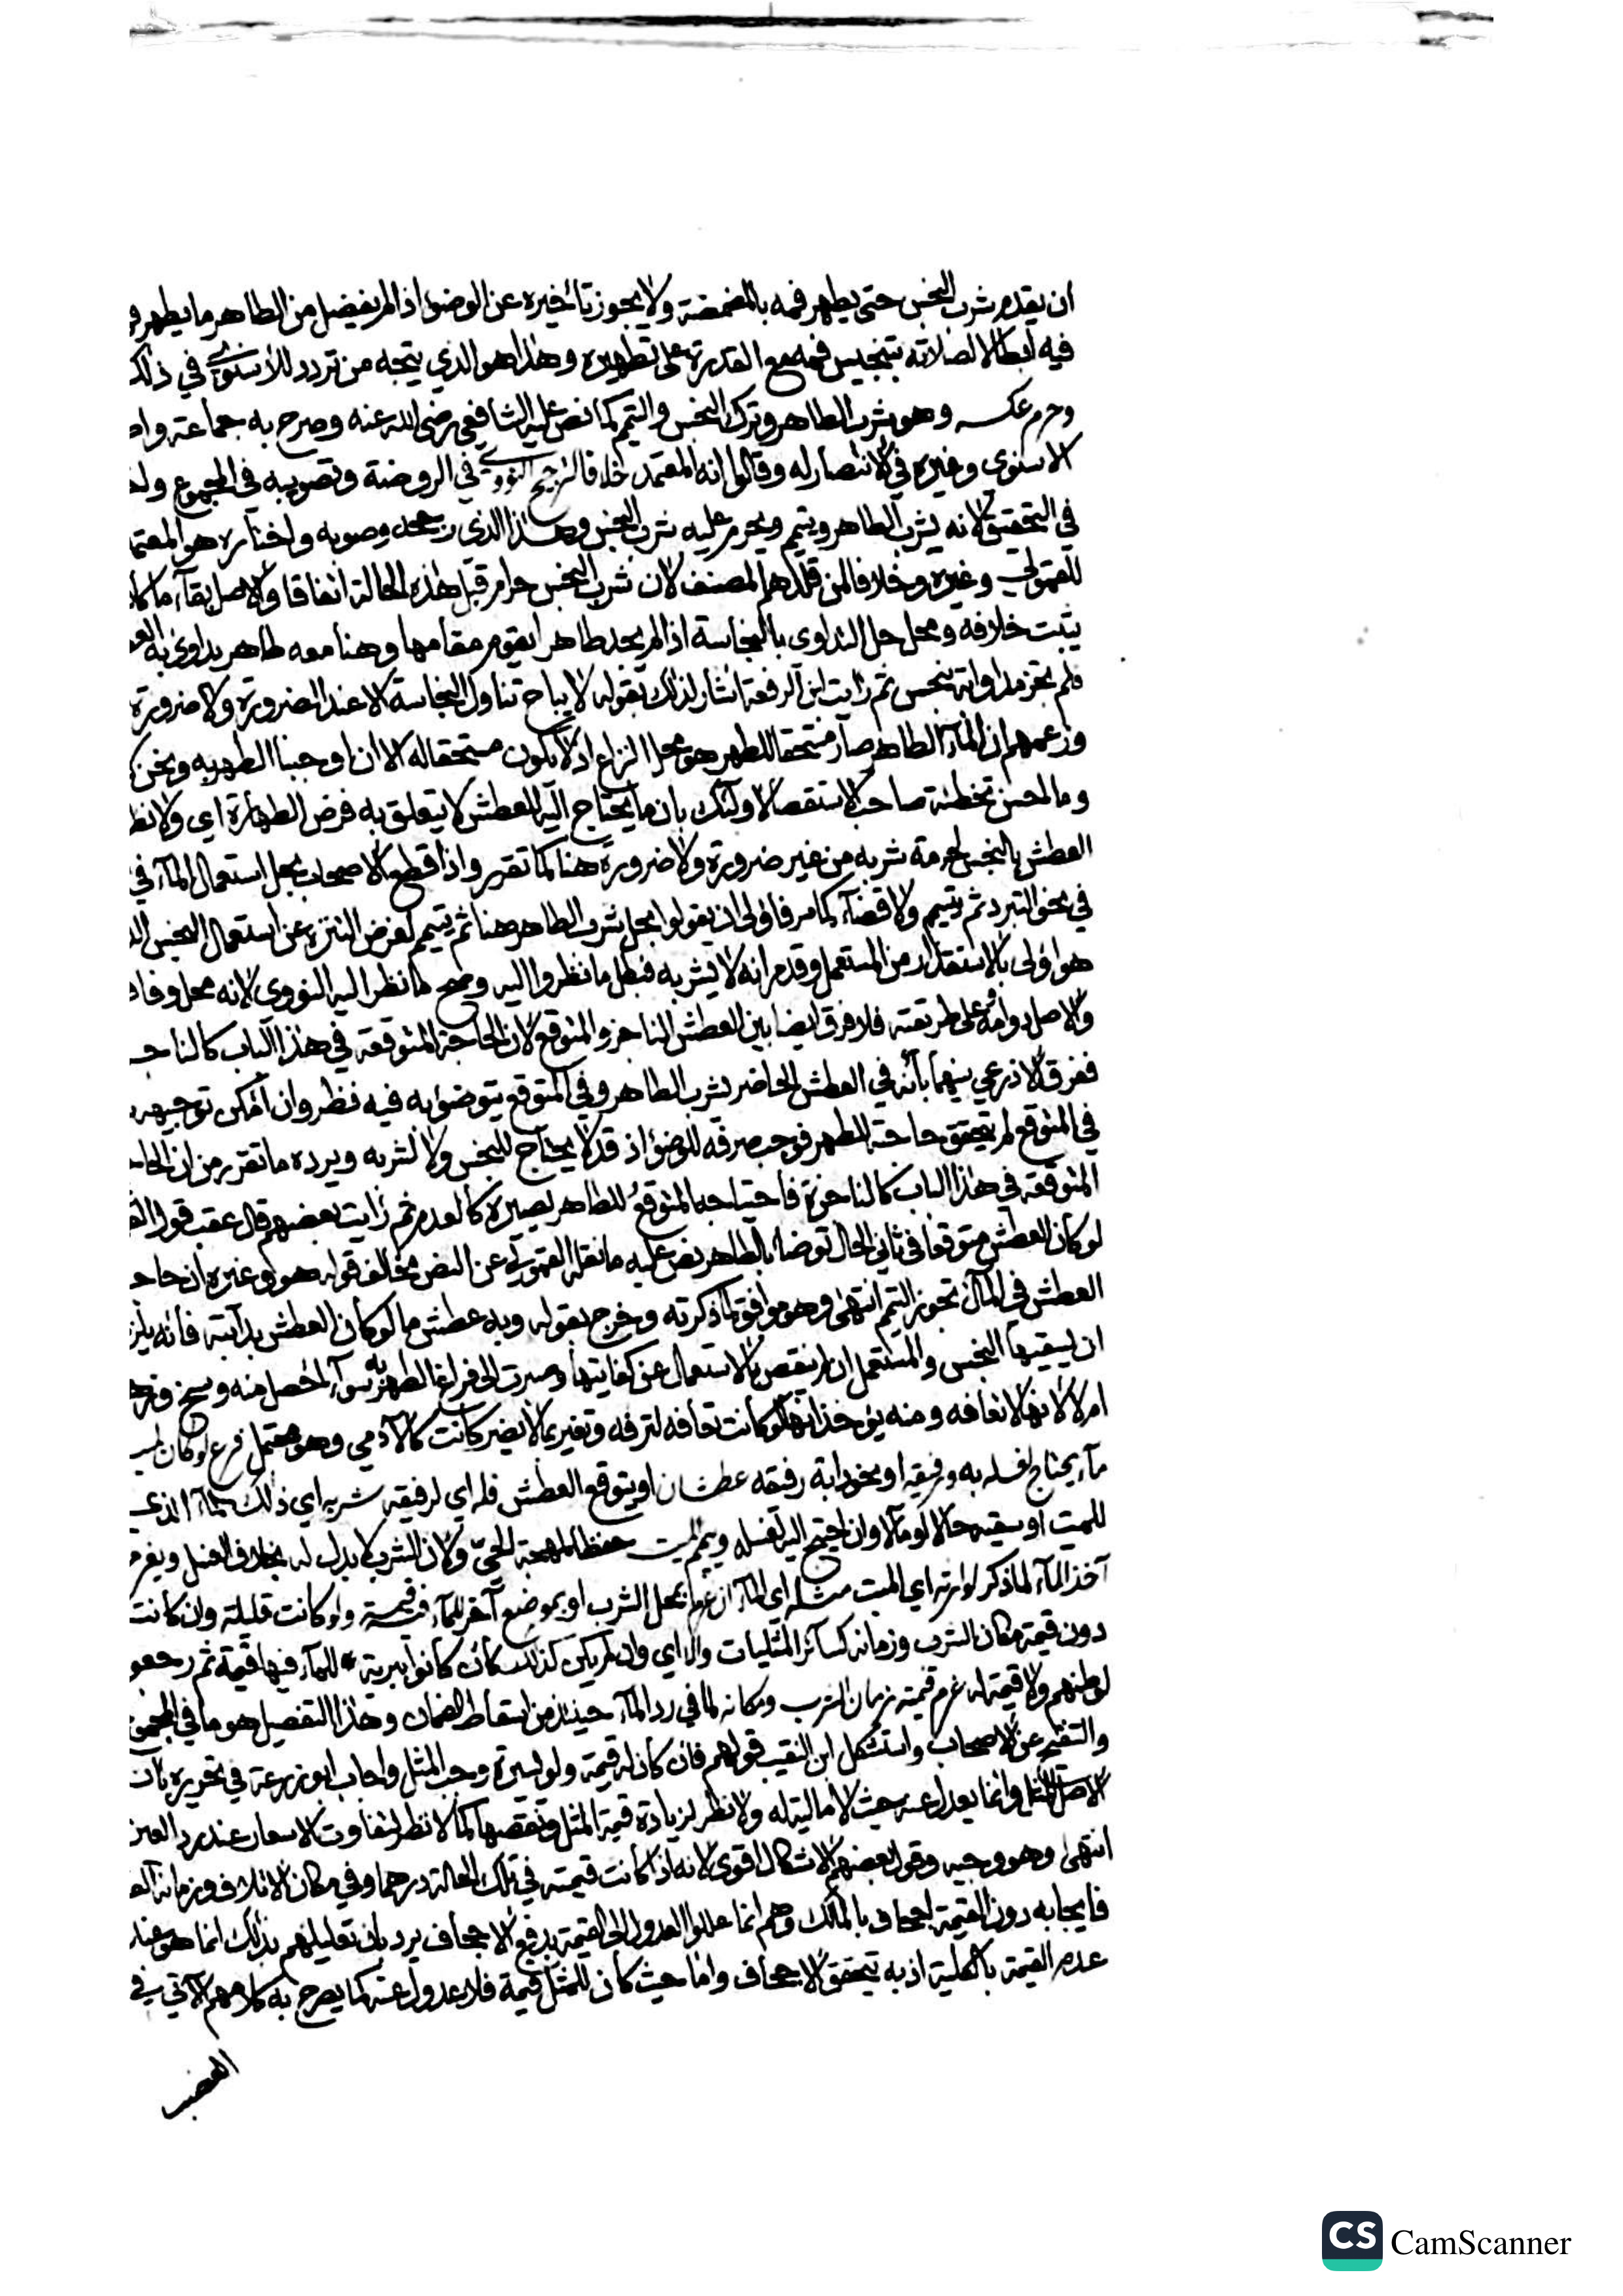 ان يقدم شرب النجس حتى يطهر فمه بالمضمضة ولا يجوز تأخيره عن الوضوا اذا لم يفضل من الطاهر ما يطهر
فيه ابطالا لصلاته بتنجيس فمه مع القدرة على تطهيره وهذا هو الذي يتجه من تردد للأسنوي في ذلك
وحرم عكسه وهو شرب الطاهر وترك النجس والتيمم كما نص عليه الشافعي رضي الله عنه وصرح به جماعة
الاسنوي وغيره في الانتصار له وقالوا انه المعتمد خلافا لترجيح النووي في الروضة وتصويبه في المجموع
في التحقيق لانه يشرب الطاهر ويتيمم ويحرم عليه شرب النجس وهذا الذي رجحه وصوبه واختاره هو المعتمد
للقمولي وغيره وخلافا لمن قلدهم المصنف لان شرب النجس حرام قبل هذه الحالة اتفاقا والاصل بقاء ما كان
يثبت خلافه ومحل حل التداوى بالنجاسة اذا لم يجد طاهرا يقوم مقامها وهنا معه طاهر يداوى به
فلم يجز مداواته بنجس ثم رايت ابن الرفعة اشار لذلك بقوله لا يباح تناول النجاسة الا عند الضرورة ولا ضرورة
وزعمهم ان الماء الطاهر صار مستحقا للطهر هو محل النزاع اذ لا يكون مستحقا له الا ان اوجبنا الطهر به ونحن
وما لمحسن تخطئة صاحب الاستقصا لاولئك بان ما يحتاج اليه للعطش لا يتعلق به فرض الطهارة اي ولا نظر
العطش بالنجس لحرمة شربه من غير ضرورة ولا ضرورة هنا كما تقرر واذا قطع الاصحاب بحل استعمال الماء في
في نحو التبرد ثم يتيمم ولا قضاء كما مر فاولى ان يقولوا بحل شرب الطاهر هنا ثم يتيمم لغرض التنزه عن استعمال النجس
هو اولى بالاستقذار من المستعمل وقدم انه لا يشربه فبطل ما نظروا اليه وصح ما نظر اليه النووي لانه محل وفاق
والاصل دوامه على طريقته فلا فرق ايضا بين العطش الناجز والمتوقع لان الحاجة المتوقعة في هذا الباب كالناجـ
ففرق الاذرعي بينهما بأنه في العطش الحاضر يشرب الطاهر وفي المتوقع يتوضؤ به فيه نظر وان امكن توجيهه
في المتوقع لم تتحقق حاجته للطهر فوجب صرفه للوضؤ اذ قد لا يحتاج للنجس ولا لشربه ويرده ما تقرر من ان الحاجـ
المتوقعة في هذا الباب كالناجزة فاحتياجه المتوقع للطاهر يصيره كالعدم ثم رايت بعضهم قال عقب قول
لو كان العطش متوقعا في ثاني الحال توضا بالطاهر نص عليه ما نقله القمولي عن النص مخالف قوله هو وغيره ان حاجـ
العطش في المآل تجوز التيمم انتهى وهو موافق لما ذكرته وخرج بقوله وبه عطش ما لو كان العطش بدابته فانه يلز
ان يسقيها النجس والمستعمل ان لم ينقص بالاستعمال عن كفايتها وصبرت الى فراغ الطهر به سواء المحصل منه وسخ وقذر
ام لا لانها لا تعافه ومنه يؤخذ انها لو كانت تعافه لترفه وتغير بما لا يضر كانت كالآدمي وهو محتمل فرع لو كان
ماء يحتاج لغسله به ورفيقه او نحو دابة رفيقه عطشان او يتوقع العطش فله اي لرفيقه شربه اي ذلك الماء الذي
للميت او يسقيه حالا او مآلا وان احتيج اليه لغسله وييمم الميت حفظا لمهجة الحي ولان الشرب لا بدل له بخلاف الغسل ويغرم
آخذ الماء لما ذكر لوارثه اي الميت مثله اي الماء ان غرم بمحل الشرب او بموضع آخر للماء فيه قيمة ولو كانت قليلة وان كانت
دون قيمة مكان الشرب وزمانه كسائر المثليات والا اي وان لم يكن كذلك كأن كانوا ببرية للماء فيها قيمة ثم رجعو
لوطنهم ولا قيمة له غرم قيمته زمان الشرب ومكانه لما في رد الماء حينئذ من اسقاط الضمان وهذا التفصيل هو ما في المجمو
والتفقيه عن الاصحاب واستشكل ابن النقيب قولهم فان كان له قيمة ولو يسيرة وجب المثل واجاب ابو زرعة في تحريره بان
الاصل المثل وانما يعدل عنه حيث لا مالية له ولا نظر لزيادة قيمة المثل ونقصها كما لا نظر لتفاوت الاسعار عند رد العين
انتهى وهو وجيه وقول بعضهم الاشكال اقوى لانه اذا كانت قيمته في تلك الحالة درهما وفي مكان الاتلاف وزمانه
فايجابه دون القيمة اجحاف بالمالك وهم انما عللوا العدول الى القيمة بدفع الاجحاف يرد بان تعليلهم بذلك انما هو عند
عدم القيمة بالكلية اذ به يتحقق الاجحاف واما حيث كان للمثل قيمة فلا عدول عنه كما يصرح به كلامهم الآتي في
الغصب
CS CamScanner